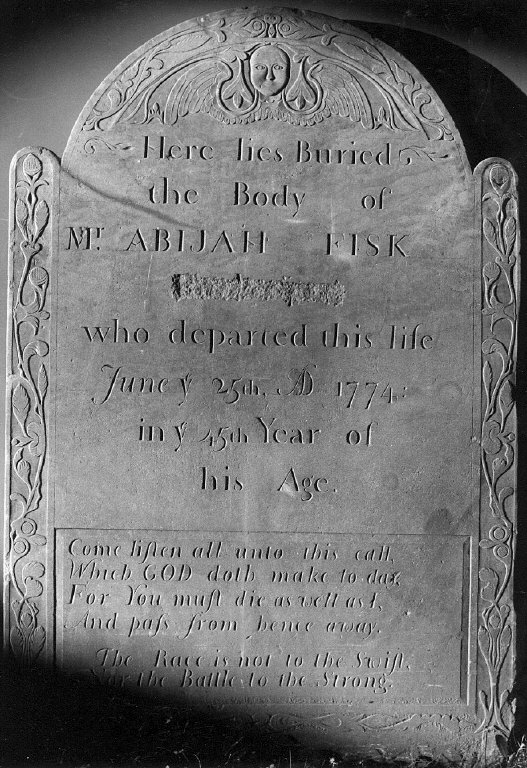 Here lies Buried
the Body of
Mr. ABIJAH FISK
who departed this life
June ye 25th, AD 1774:
in ye 45th Year of
his Age.
Come liſten all unto this call,
Which GOD doth make to day,
For You muſt die as well as I,
And paſs from hence away.
The Race is not to the Swift,
Nor the Battle to the Strong.